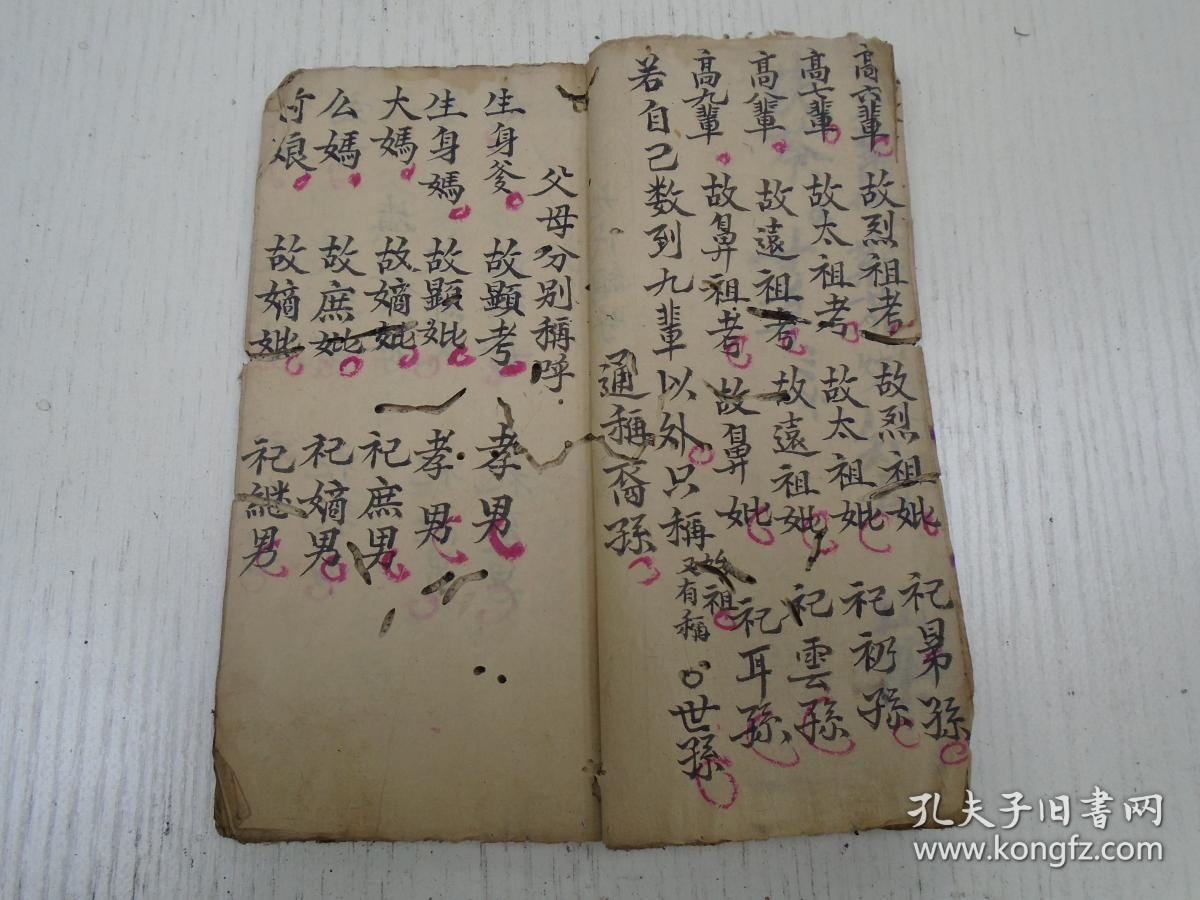 高六輩 故烈祖考 故烈祖妣 祀晜孫
高七輩 故太祖考 故太祖妣 祀礽孫
高八輩 故遠祖考 故遠祖妣 祀雲孫
高九輩 故鼻祖考 故鼻妣 祀耳孫
若自己数到九輩以外只稱 始祖 又有稱 世孫
通稱裔孫
父母分別稱呼
生身爹 故顯考 孝男
生身媽 故顯妣 孝男
大媽 故嫡妣 祀庶男
么媽 故庶妣 祀嫡男
娘 故嫡妣 祀継男
孔夫子旧书网
www.kongfz.com